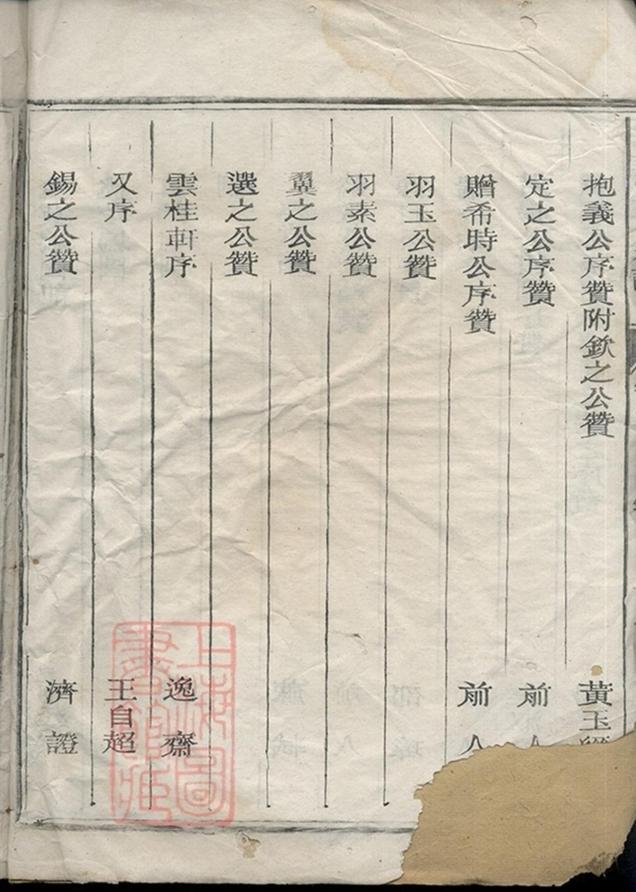 抱義公序贊附欽之公贊 黃玉
定之公序贊 前人
贈希時公序贊 前人
羽玉公贊
羽素公贊
翼之公贊
選之公贊
雲桂軒序 逸齋
又序 王自超
錫之公贊 濟證
上海圖書館藏